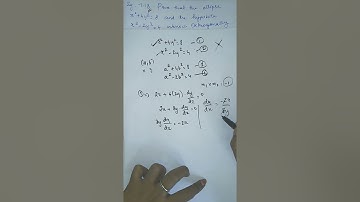 Prove that the ellipse
x²+4y²=8 and the hyperbola
x²-2y²=4 intersect orthogonally
x²+4y²=8 ①
x²-2y²=4 ②
(a,b)
a²+4b²=8
a²-2b²=4
m₁×m₂=-1
2x+4(2y).dy/dx=0
2x+8y.dy/dx=0
dy/dx = -2x/8y
8y dy/dx = -2x